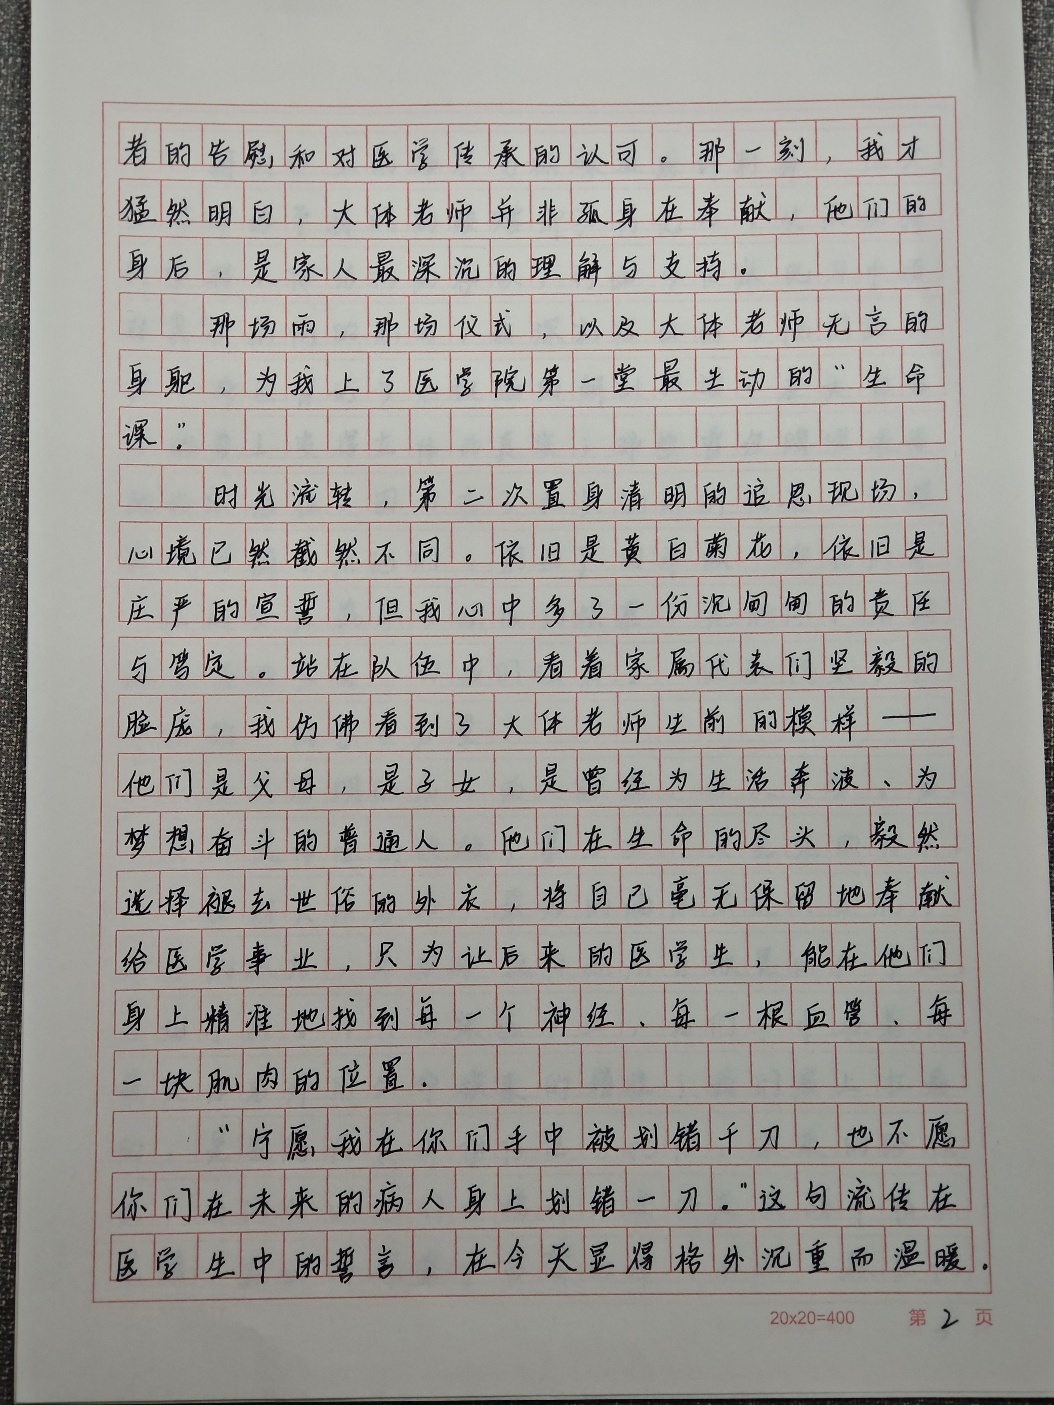 者的告慰和对医学传承的认可。那一刻，我才
猛然明白，大体老师并非孤身在奉献，他们的
身后，是家人最深沉的理解与支持。
那场雨，那场仪式，以及大体老师无言的
身躯，为我上了医学院第一堂最生动的“生命
课”。
时光流转，第二次置身清明的追思现场，
心境已然截然不同。依旧是黄白菊花，依旧是
庄严的宣誓，但我心中多了一份沉甸甸的责任
与笃定。站在队伍中，看着家属代表们坚毅的
脸庞，我仿佛看到了大体老师生前的模样——
他们是父母，是子女，是曾经为生活奔波、为
梦想奋斗的普通人。他们在生命的尽头，毅然
选择褪去世俗的外衣，将自己毫无保留地奉献
给医学事业，只为让后来的医学生，能在他们
身上精准地找到每一个神经、每一根血管、每
一块肌肉的位置．
“宁愿我在你们手中被划错千刀，也不愿
你们在未来的病人身上划错一刀。”这句流传在
医学生中的誓言，在今天显得格外沉重而温暖．
20x20=400 第2页